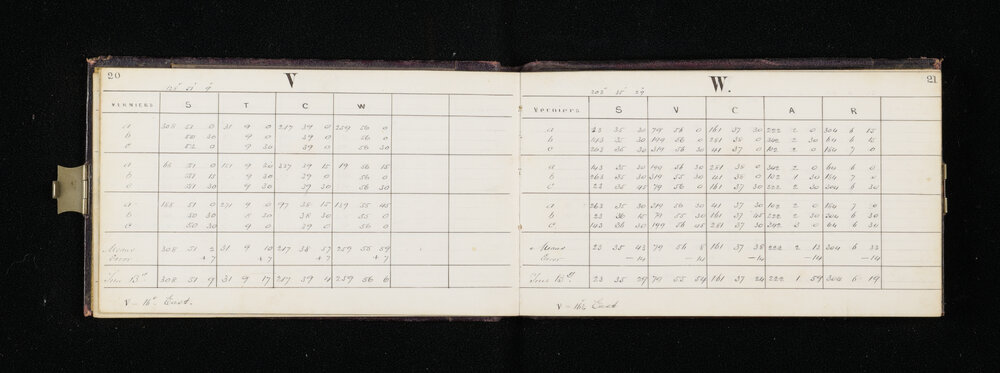 20
V
128 51 9
VERNIERS S T C W
a 308 51 0 31 9 0 217 39 0 259 56 0
b 50 30 9 0 39 0 56 0
c 52 0 9 30 39 0 56 30
a 68 51 0 151 9 30 337 39 15 19 56 15
b 51 15 9 30 39 0 56 0
c 51 30 9 30 39 30 56 30
a 188 51 0 271 9 0 97 38 15 139 55 45
b 50 30 8 30 38 30 55 0
c 50 30 9 0 39 0 56 0
Means 308 51 2 31 9 10 217 38 57 259 55 59
Error +7 +7 +7 +7
True Bgs 308 51 9 31 9 17 217 39 4 259 56 6
V - East.
21
W.
203 35 29
VERNIERS S V C A R
a 23 35 30 79 56 0 161 37 30 222 2 0 304 6 15
b 143 35 30 199 56 0 281 38 0 342 2 30 64 6 15
c 263 35 30 319 56 30 41 37 0 102 2 0 184 7 0
a 143 35 30 199 56 30 281 38 0 342 2 0 64 6 0
b 263 35 30 319 55 30 41 38 0 102 1 30 184 7 0
c 23 35 45 79 56 0 161 37 30 222 2 30 304 6 30
a 263 35 30 319 56 30 41 37 30 102 2 0 184 7 0
b 23 36 15 79 55 30 161 37 45 222 2 0 304 6 30
c 143 36 30 199 56 45 281 37 30 342 3 0 64 6 30
Means 23 35 43 79 56 8 161 37 38 222 2 13 304 6 33
Error -14 -14 -14 -14 -14
True Bgs 23 35 29 79 55 54 161 37 24 222 1 59 304 6 19
V - East